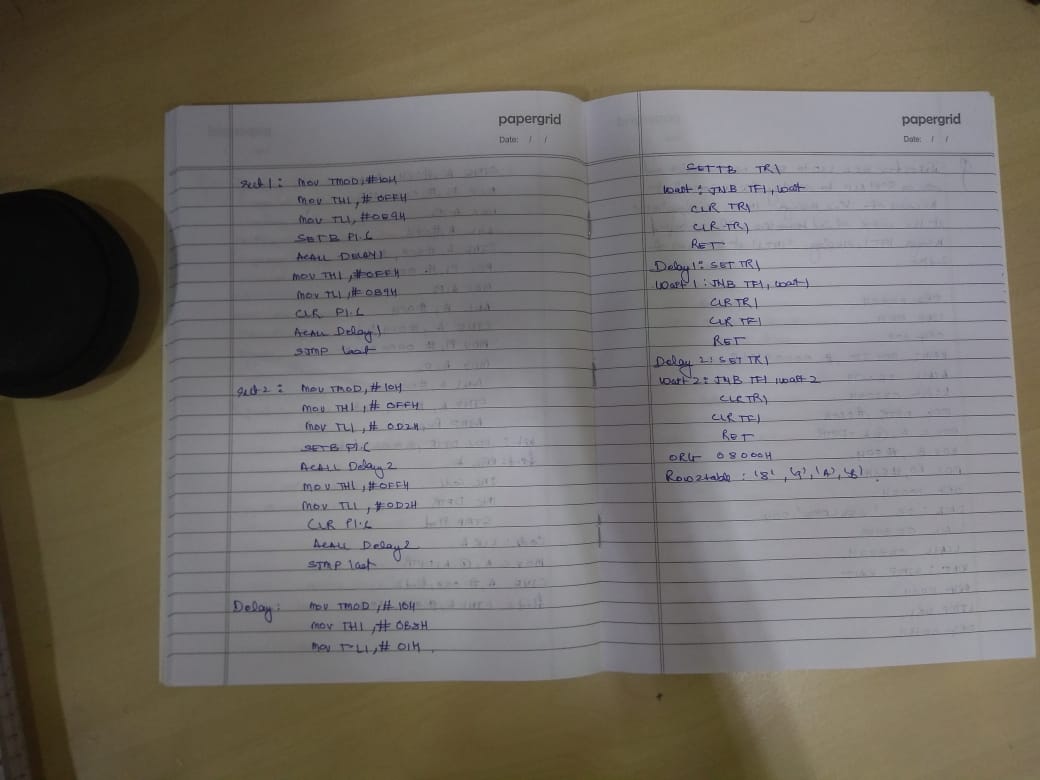 papergrid
Date: / /
MOV TMOD, #10H
MOV TH1, # OFFH
MOV TL1, #0B9H
SETB P1.6
ACALL DELAY1
MOV TH1, #OFFH
MOV TL1, #0B9H
CLR P1.6
ACALL Delay1
SJMP last
MOV TMOD, #10H
MOV TH1, # OFFH
MOV TL1, # 0D2H
SETB P1.6
ACALL Delay2
MOV TH1, #OFFH
MOV TL1, #0D2H
CLR P1.6
ACALL Delay2
SJMP last
Delay: MOV TMOD, #10H
MOV TH1, # 0B8H
MOV TL1, # 01H
papergrid
Date: / /
SETTB TR1
wait: JNB TF1, wait
CLR TR1
CLR TR1
RET
Delay1: SET TR1
wait1: JNB TF1, wait1
CLR TR1
CLR TF1
RET
Delay 2: SET TR1
wait2: JNB TF1 wait 2
CLR TR1
CLR TF1
RET
ORG 08000H
Row2table: '8', '9', 'A', 'B'